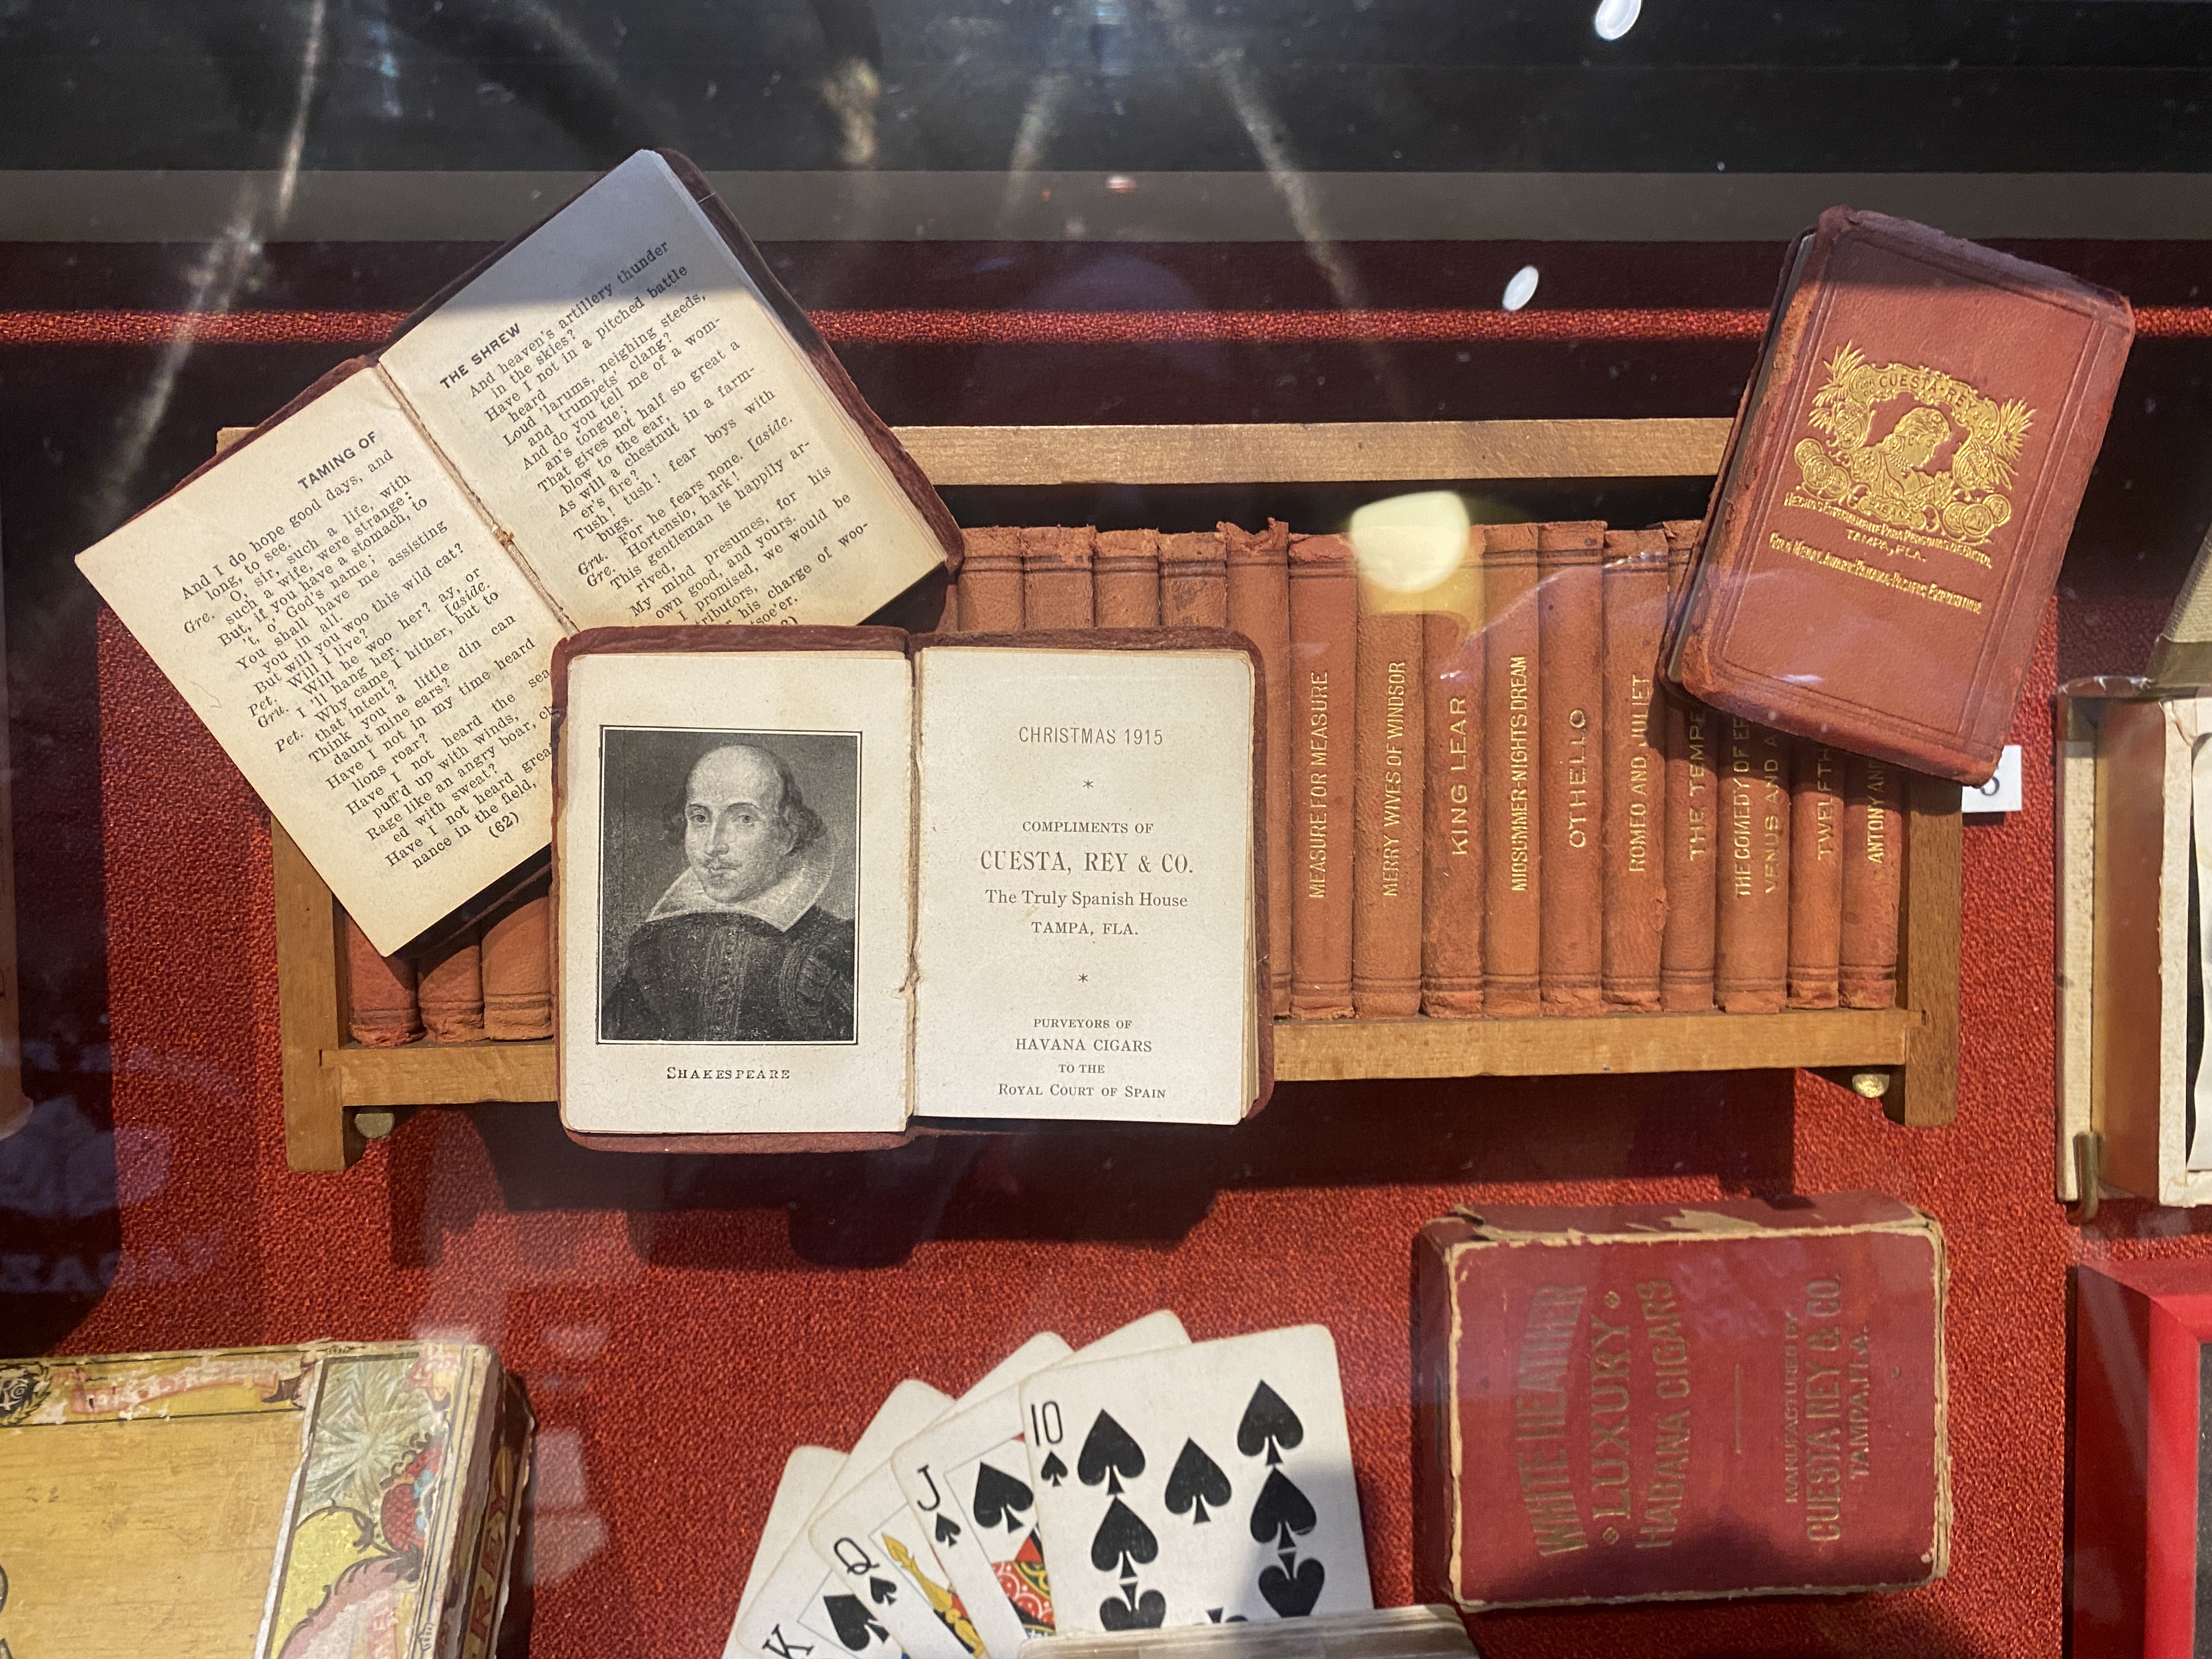 TAMING OF
And I do hope good days, and
long, to see.
Gre. O, sir, such a life, with
such a wife, were strange;
But, if you have a stomach, to
't, o' God's name;
You shall have me assisting
you in all.
But will you woo this wild cat?
Pet. Will I live?
Gru. Will he woo her? ay, or
I 'll hang her. [aside.
Pet. Why came I hither, but to
that intent?
Think you a little din can
daunt mine ears?
Have I not in my time heard
lions roar?
Have I not heard the sea
puff'd up with winds,
Rage like an angry boar, ch
ed with sweat?
Have I not heard grea
nance in the field,
(62)
THE SHREW
And heaven's artillery thunder
in the skies?
Have I not in a pitched battle
heard
Loud 'larums, neighing steeds,
and trumpets' clang?
And do you tell me of a wom-
an's tongue;
That gives not half so great a
blow to the ear,
As will a chestnut in a farm-
er's fire?
Tush! tush! fear boys with
bugs.
Gru. For he fears none. [aside.
Gre. Hortensio, hark!
This gentleman is happily ar-
rived,
My mind presumes, for his
own good, and yours.
I promised, we would be
tributors,
his charge of woo-
tsoe'er.
SHAKESPEARE
CHRISTMAS 1915
*
COMPLIMENTS OF
CUESTA, REY & CO.
The Truly Spanish House
TAMPA, FLA.
*
PURVEYORS OF
HAVANA CIGARS
TO THE
ROYAL COURT OF SPAIN
MEASURE FOR MEASURE
MERRY WIVES OF WINDSOR
KING LEAR
MIDSUMMER-NIGHTS DREAM
OTHELLO
ROMEO AND JULIET
THE TEMPE
THE COMEDY OF
VENUS AND A
TWELFTH
ANTONY AND
FLOR CUESTA-REY
HECHOS ESPECIALMENTE PARA PERSONAS DE GUSTO.
TAMPA, FLA.
GOLD MEDAL AWARD PANAMA-PACIFIC EXPOSITION
K
Q
J
10
WHITE HEATHER
LUXURY
HABANA CIGARS
MANUFACTURED BY
CUESTA REY & CO.
TAMPA, FLA.
REY